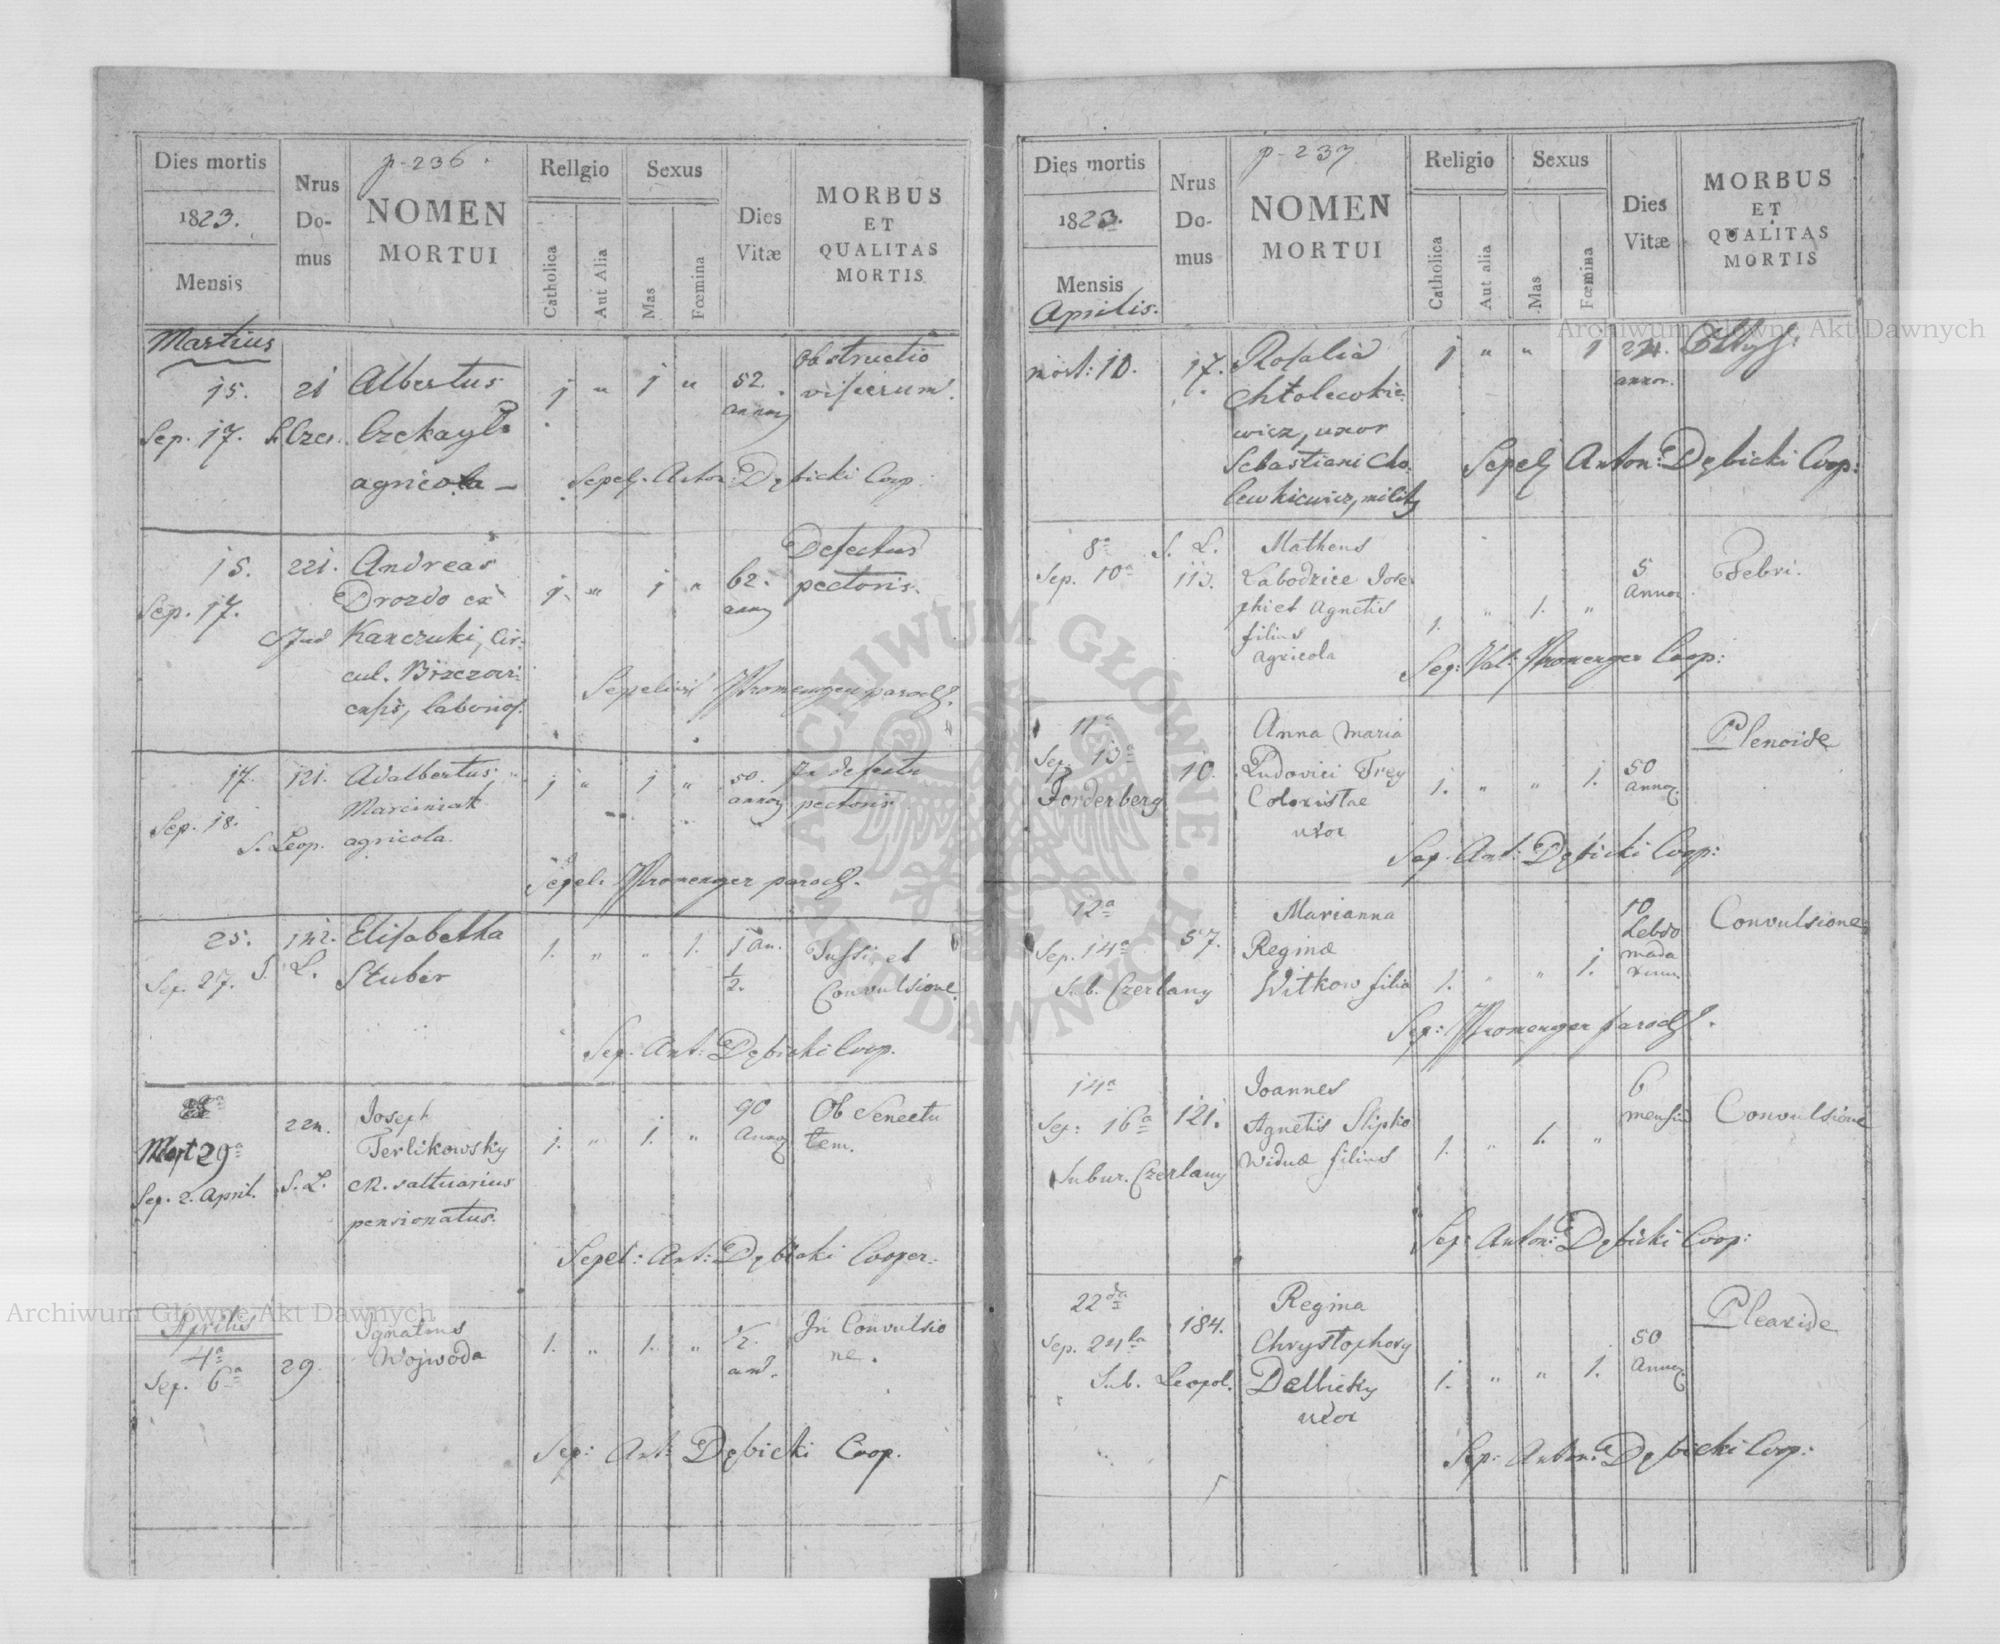 p-236.
Dies mortis
1823.
Mensis
Nrus
Do-
mus
NOMEN
MORTUI
Religio
Catholica
Aut Alia
Sexus
Mas
Fœmina
Dies
Vitæ
MORBUS
ET
QUALITAS
MORTIS
Martius
15. 21 Albertus 1 " 1 " 52. Obstructio
annor viscerum.
Sep. 17.
agricola
Sepel. Anton: Dębicki Coop.
15. 221. Andreas 1. " 1 " 62. Defectus
Sep. 17. Drozdo ex pectoris.
Kanczuki, Cir-
cul.
Promenger paroch.
17. 121. Adalbertus 1 " 1 " 50. Ex defectu
Marciniak annor pectoris
Sep. 18.
S. Leop. agricola.
Sepel. Promenger paroch.
25. 142. Elisabetha 1. " " 1. 1 an. Tussi, et
Sep. 27. S. L. Stuber 1/2. Convulsione.
Sep. Ant: Dębicki Coop.
Mort 29a 224. Joseph 1. " 1. " 90 Ob Senectu
Terlikowsky Annor tem.
Sep. 2. April. S. L. CR. saltuarius
pensionatus.
Sepel: Ant: Dębicki Cooper:
Aprilis
4a Ignatius 1. " 1. " 1/2. In Convulsio
Sep. 6a 29. Wojwoda ne.
Sep: Ant: Dębicki Coop.
p-237
Dies mortis
1823.
Mensis
Aprilis.
Nrus
Do-
mus
NOMEN
MORTUI
Religio
Catholica
Aut alia
Sexus
Mas
Fœmina
Dies
Vitæ
MORBUS
ET
QUALITAS
MORTIS
mort: 10. 17. Rosalia 1 " " 1
annor.
wicz, uxor
Sebastiani Cho
lewkiewicz, milit
Sepel Anton: Dębicki Coop:
8a S. L. Matheus 5 Febri.
Sep. 10a 113. Labodzice Jose- Annor.
phi et Agnetis 1. " 1. "
filius
agricola
Sep: Val: Promenger Coop:
11a Anna Maria Plenoide
Sep. 13a 10. Ludovici Frey 1. " " 1. 50
Forderberg Coloristae Annor.
uxor
Sep. Ant: Dębicki Coop:
12a Marianna 10 Convulsione
Sep. 14a 57. Reginæ Hebdo
mada
Sub. Czerlany Witkow filia 1. " " 1. rum.
Sep: Promenger paroch.
14a Joannes 6 Convulsione
Sep: 16a 121. Agnetis Slipko mensium
Subur. Czerlany Viduæ filius 1. " 1. "
Sep: Anton: Dębicki Coop:
22da Regina Pleuride
Sep. 24ta 184. Chrystophory 50
Sub. Leopol. Delbicky 1. " " 1. Annor.
uxor
Sep: Anton: Dębicki Coop:
Archiwum Główne Akt Dawnych
Archiwum Główne Akt Dawnych
ARCHIWUM GŁÓWNE AKT DAWNYCH